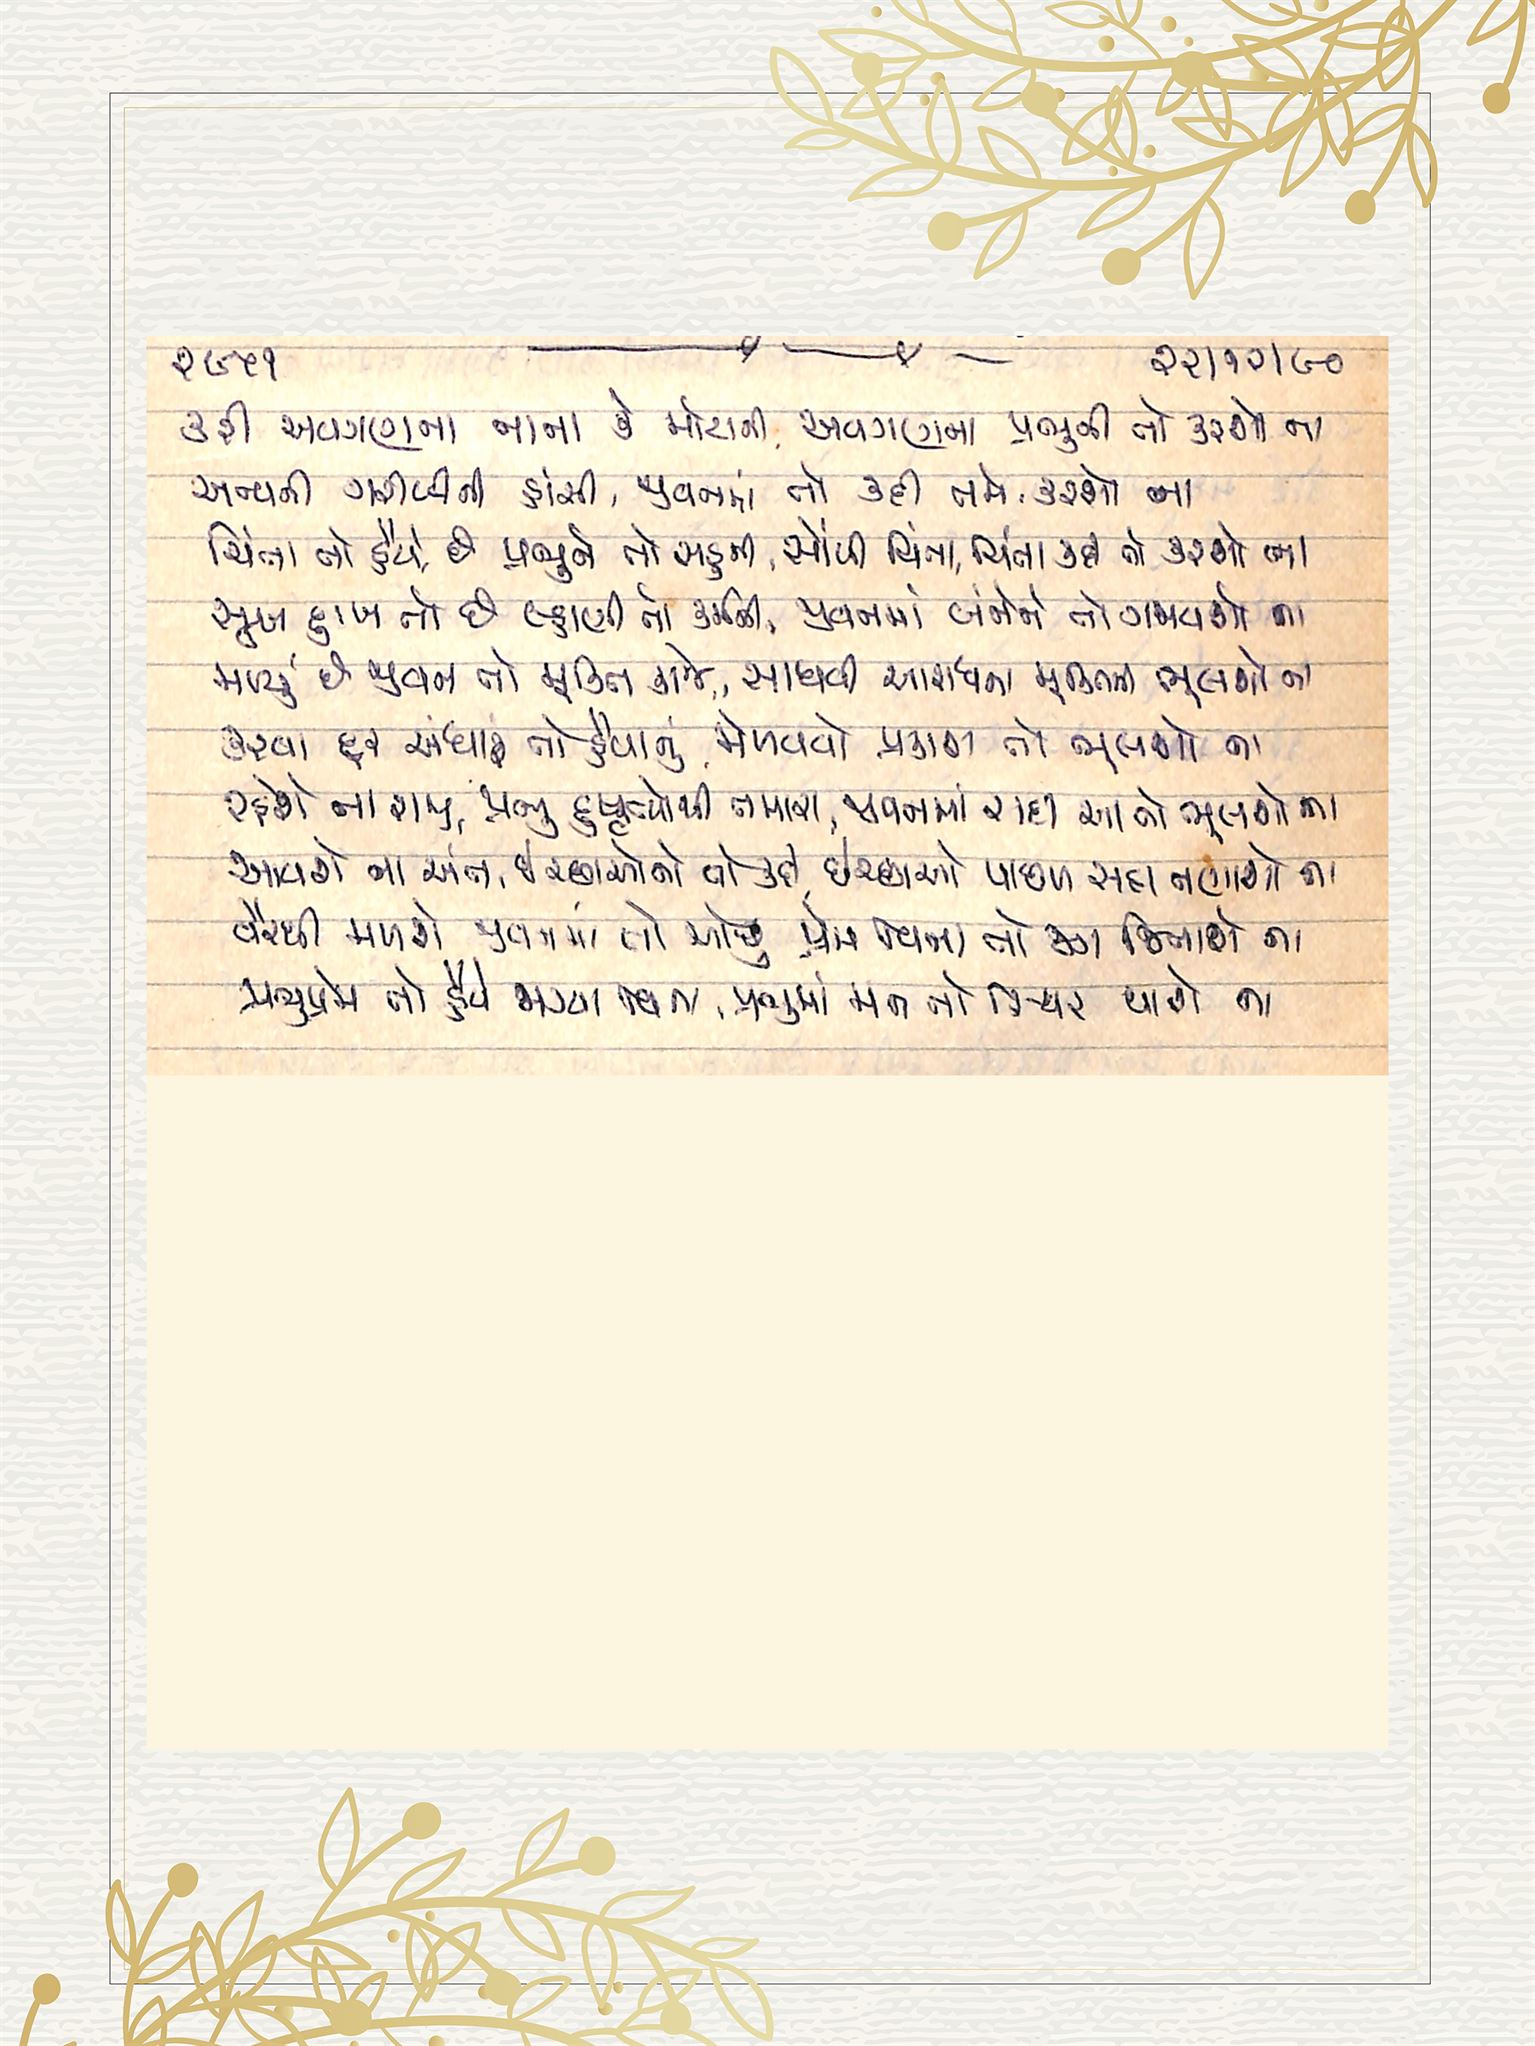 ૨૭૫૧ ૨૨/૧૨/૯૦
કરી અવગણના નાના કે મોટાની, અવગણના પ્રભુની તો કરશો ના
અન્યની ગરીબીની હાંસી, જીવનમાં તો કદી તમે કરશો ના
ચિંતા તો હૈયે, છે પ્રભુને તો સહુની, સોંપી ચિંતા, ચિંતા કદી તો કરશો ના
સુખ દુઃખ તો છે લ્હાણી તો કર્મની, જીવનમાં બંનેને તો ગમવશો ના
મળ્યું છે જીવન તો મુક્તિ કાજે, સાધવી આરાધના મુક્તિની ભૂલશો ના
કરવા દૂર અંધારું તો હૈયાનું, મેળવવો પ્રકાશ તો ભૂલશો ના
રહેશે ના રાજી, પ્રભુ દુષ્કૃત્યોથી તમારા, જીવનમાં સદા આ તો ભૂલશો ના
આવશે ના અંત, ઇચ્છાઓનો તો કદી, ઇચ્છાઓ પાછળ સદા તણાશો ના
વૈરથી મળશે જીવનમાં તો ઓછું, પ્રેમ વિના તો જગ જિતાશે ના
પ્રભુપ્રેમ તો હૈયે જાગ્યા વિના, પ્રભુમાં મન તો સ્થિર થાશે ના